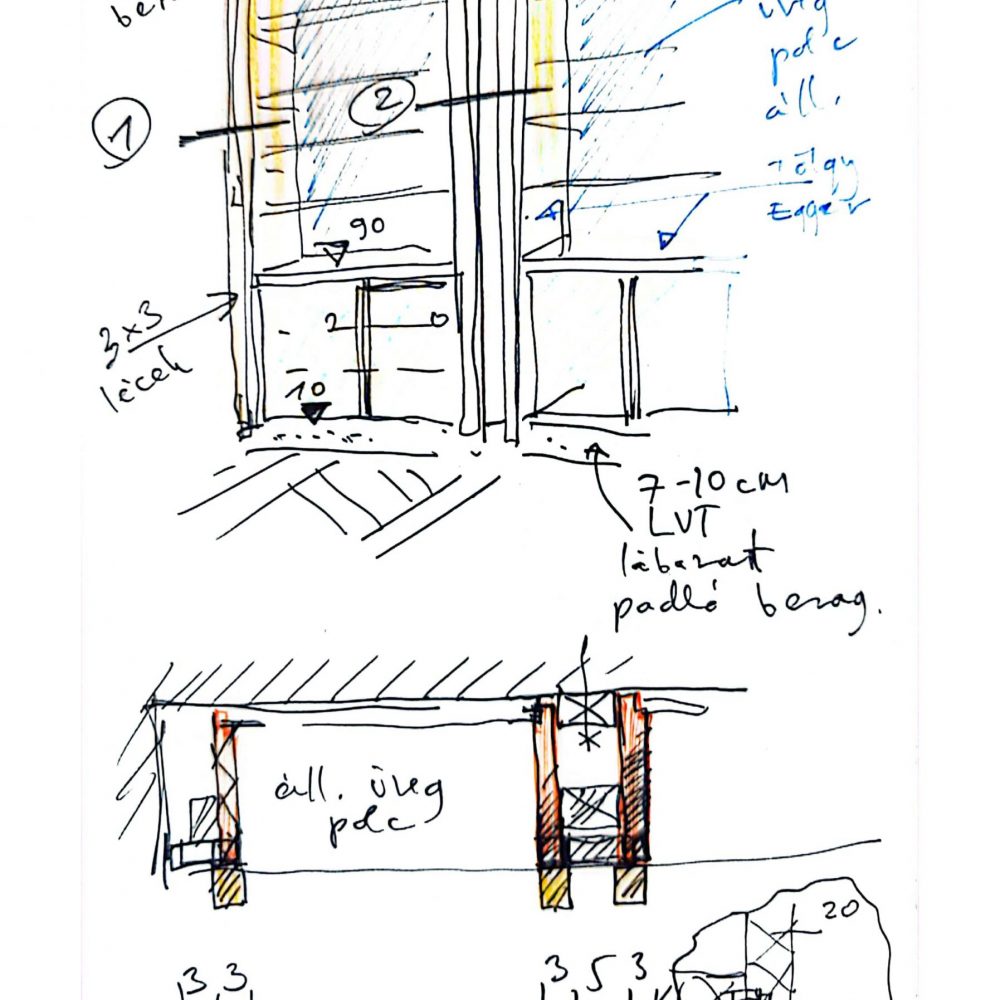 üveg
polc
áll.
1
2
tölgy
Egger
90
3x3
lécek
2
0
10
7-10 cm
LVT
lábazat
padló berag.
áll. üveg
polc
20
3 3
3 5 3